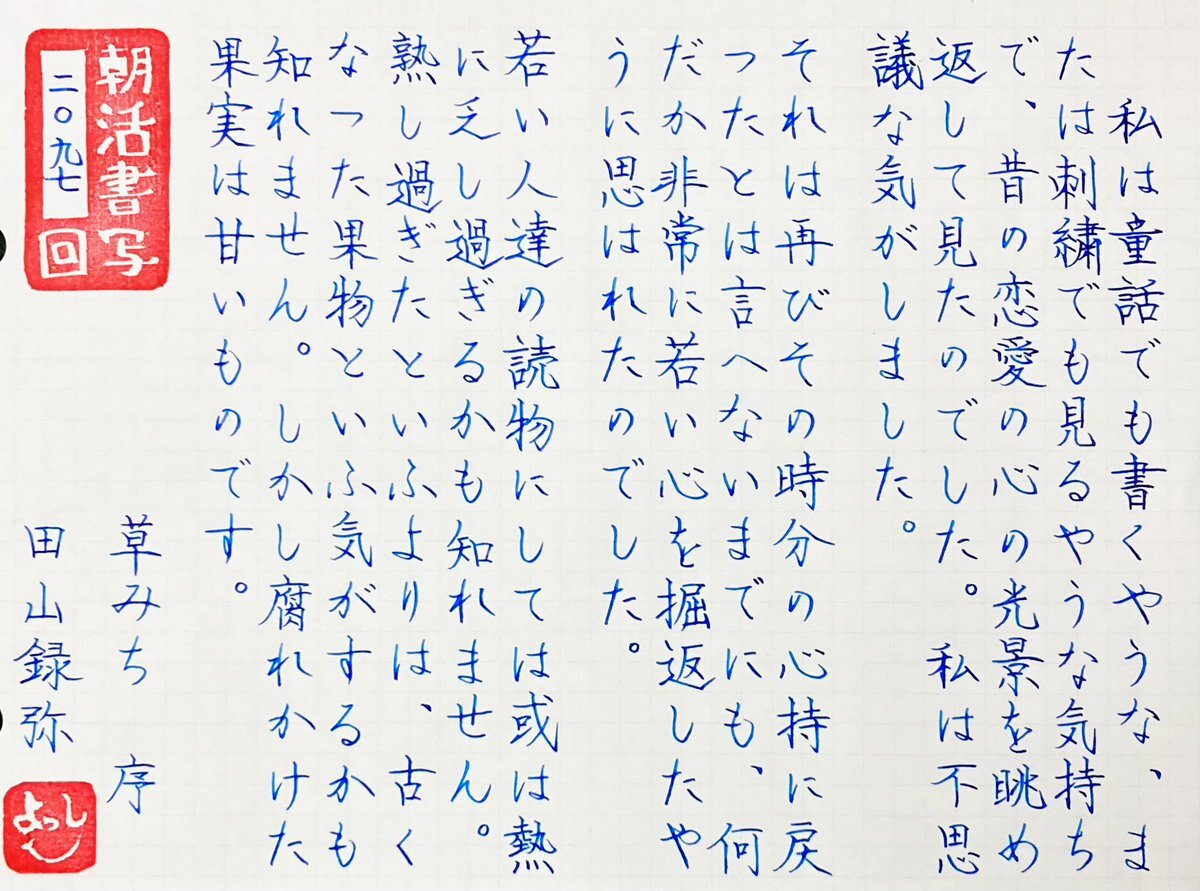 私は童話でも書くやうな、ま
たは刺繍でも見るやうな気持ち
で、昔の恋愛の心の光景を眺め
返して見たのでした。私は不思
議な気がしました。
それは再びその時分の心持に戻
つたとは言へないまでにも、何
だか非常に若い心を掘返したや
うに思はれたのでした。
若い人達の読物にしては或は熱
に乏し過ぎるかも知れません。
熟し過ぎたといふよりは、古く
なつた果物といふ気がするかも
知れません。しかし腐れかけた
果実は甘いものです。
草みち 序
田山録弥
朝活書写
二〇九七
回
よっし